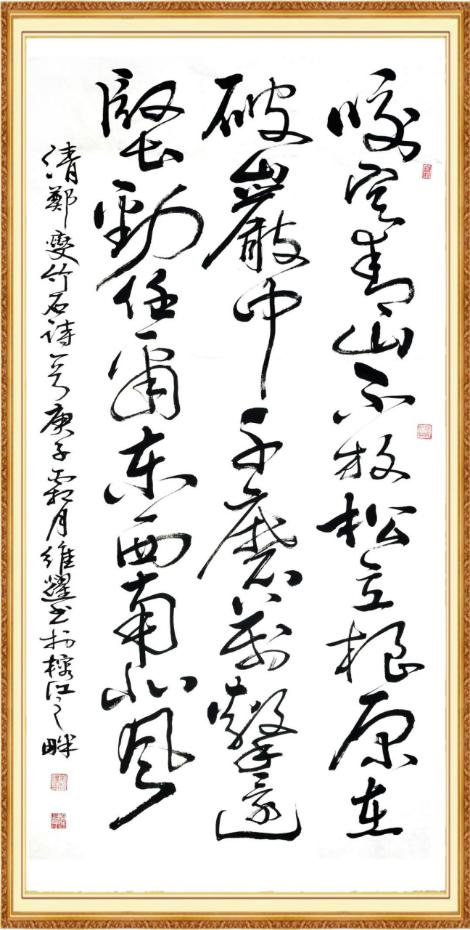 咬定青山不放松立根原在
破巖中千磨萬擊還
堅勁任爾东西南北风
清鄭燮竹石诗一首庚子霜月維耀书於榕江之畔